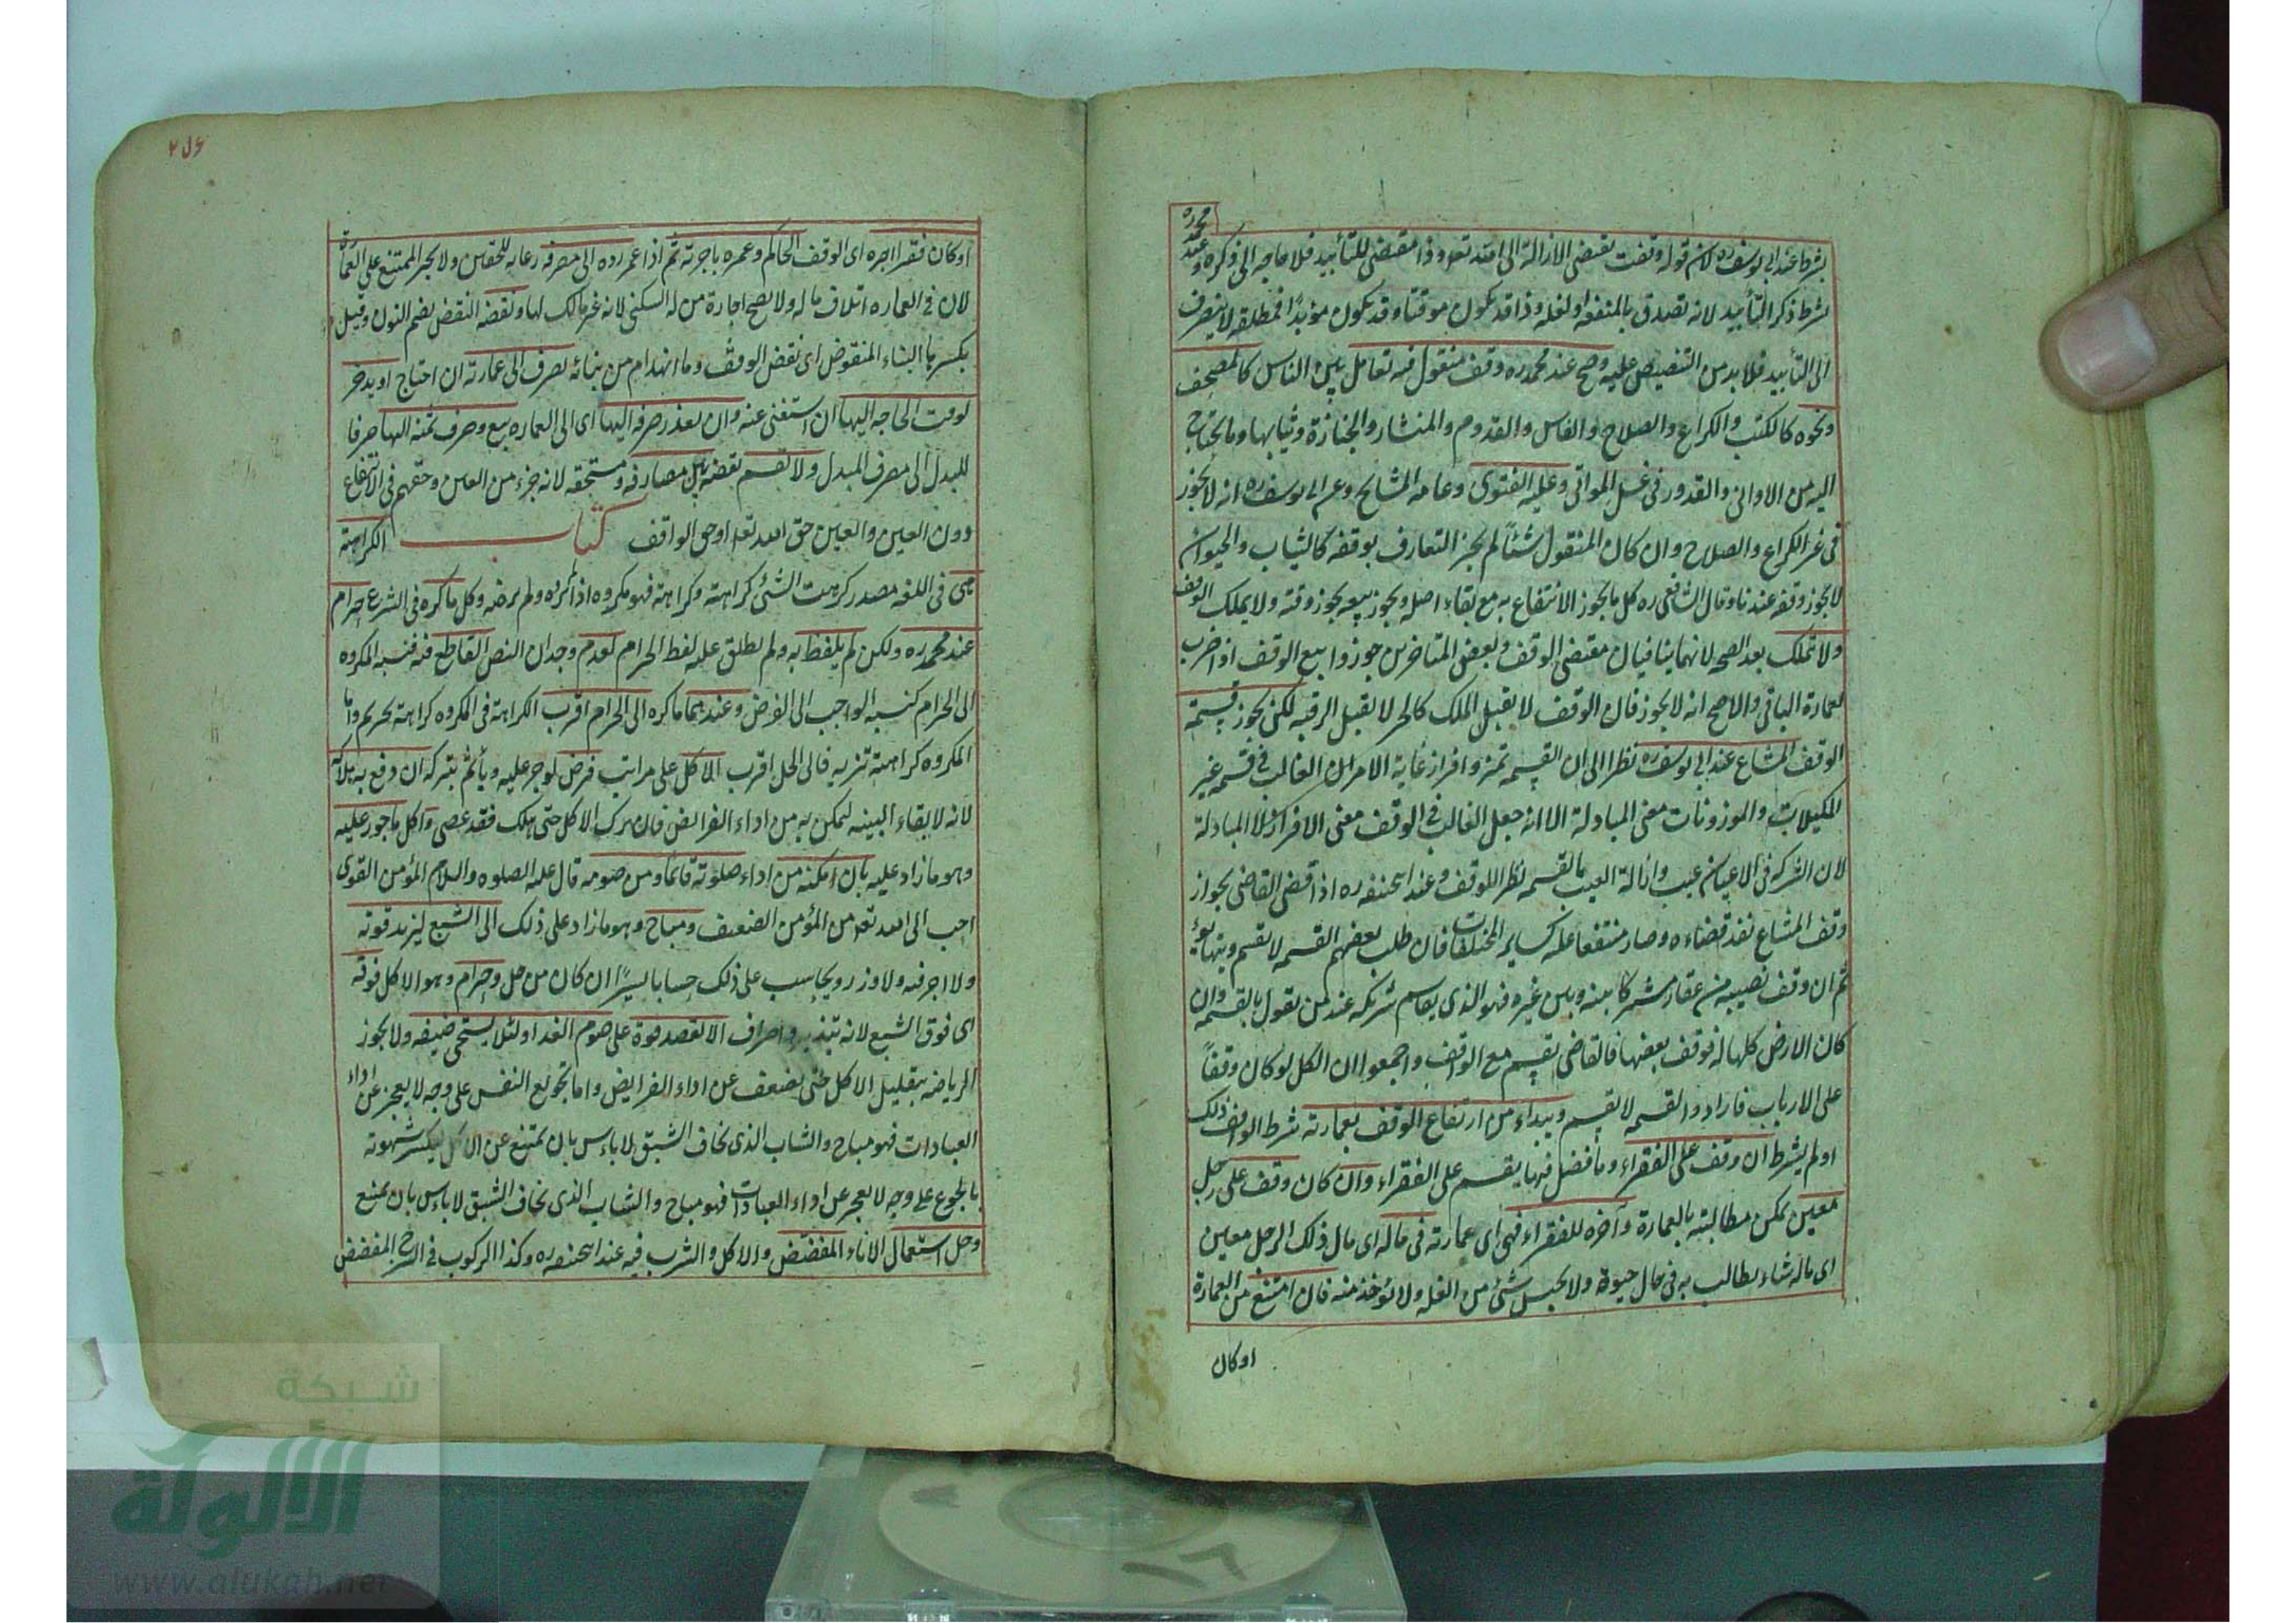 بشرط عند ابى يوسف ره لان قوله وقفت يقتضى الازالة الى الله تعه وذا مقتضى للتأبيد فلا حاجه الى ذكره وعند محمد ره
بشرط ذكر التأبيد لانه تصدق بالمنفعه او لغله وذا قد يكون موقتا وقد يكون مؤبدًا فمطلقه لا ينصرف
الى التأبيد فلا بد من التنصيص عليه وصح عند محمد ره وقف منقول فيه تعامل بين الناس كالمصحف
ونحوه كالكتب والكراع والصلاح والفاس والقدوم والمنشار والجنازة وثيابها وما يحتاج
اليه من الاوانى والقدور فى غسل الموتى وعليه الفتوى وعامه المشايخ وعن ابى يوسف ره انه لا يجوز
فى غير الكراع والصلاح وان كان المنقول شئًا لم يجز التعارف بوقفه كالثياب والحيوان
لا يجوز وقفه عندنا وقال الشافعى ره كل ما يجوز الانتفاع به مع بقاء اصله ويجوز بيعه يجوز وقفه ولا يملك الوقف
ولا تملك بعد الصحه لانهما ينافيان مقتضى الوقف وبعض المتاخرين جوزوا بيع الوقف اذا خرب
لعمارة الباقى والاصح انه لا يجوز فان الوقف لا يقبل الملك كالحر لا يقبل الرقيه لكن يجوز قسمة
الوقف المشاع عند ابى يوسف ره نظرا الى ان القسمه تميز وافراز غاية الامر ان الغالب فى قسمه غير
المكيلات والموزونات معنى المبادلة الا انه جعل الغالب فى الوقف معنى الافراز لا المبادلة
لان الشركه فى الاعيان عيب وازالة العيب بالقسمه نظرا للوقف وعند ابيحنيفه ره اذا قضى القاضى بجواز
وقف المشاع نفذ قضاءه وصار متفقا عليه كساير المختلفات فان طلب بعضهم القسمه لا يقسم ويتهايؤ
ثم ان وقف نصيبه من عقار مشتركا بينه وبين غيره فهو الذى يقاسم شريكه عند من يقول بالقسمه وان
كان الارض كلها له فوقف بعضها فالقاضى يقسم مع الواقف واجمعوا ان الكل لو كان وقفًا
على الارباب فارادوا القسمه لا يقسم ويبداء من ارتفاع الوقف بعمارته شرط الواقف ذلك
اولم يشرط ان وقف على الفقراء وما فضل فيها يقسم على الفقراء وان كان وقف على رجل
معين يمكن مطالبته بالعمارة وآخره للفقراء فهى اى عمارته فى ماله اى مال ذلك الرجل معين
اى ماله شاء يطالب به فى حال حيوته ولا يحبس شئ من الغله ولا يؤخذ منه فان امتنع من العمارة
اوكان
٢٥٦
اوكان فقرا اجره اى الوقف الحاكم وعمره باجرته ثم اذا عمر رده الى مصرفه رعايه للحقين ولا يجبر الممتنع على العمارة
لان فى العماره اتلاف ماله ولا يصح اجارة من له السكنى لانه غير مالك لها ونقضه النقض بضم النون وقيل
بكسرها البناء المنقوض اى نقض الوقف وما انهدام من بنائه يصرف الى عمارته ان احتاج او يدخر
لوقت الحاجه اليها ان استغنى عنه وان تعذر صرفه اليها اى الى العماره بيع وصرف ثمنه اليها صرفا
للبدل الى مصرف المبدل ولا يقسم نقضه بين مصارفه ومستحقه لانه جزء من العين وحقهم فى الانتفاع
دون العين والعين حق الله تعه او حق الواقف كتاب الكراهة
هى فى اللغه مصدر كرهت الشئ كراهته وكراهة فهو مكروه اذا لم يرده ولم يرضه وكل ما كره فى الشرع حرام
عند محمد ره ولكن لم يلفظ به ولم يطلق عليه لفظ الحرام لعدم وجدان النص القاطع فيه فنسبه المكروه
الى الحرام كنسبه الواجب الى الفرض وعندهما ما كره الى الحرام اقرب الكراهة فى المكروه كراهة تحريم واما
المكروه كراهة تنزيه فالى الحل اقرب الاكل على مراتب فرض يوجر عليه ويأثم بتركه ان دفع به هلاكه
لانه لابقاء البينه ليمكن به من اداء الفرائض فان ترك الاكل حتى هلك فقد عصى واكل ما جور عليه
وهو ما زاد عليه بان امكنه من اداء صلوته قائما ومن صومه قال عليه الصلوه والسلام المؤمن القوى
احب الى الله تعه من المؤمن الضعيف ومباح وهو ما زاد على ذلك الى الشبع ليزيد قوته
ولا اجر فيه ولا وزر ويحاسب على ذلك حسابا يسيرًا ان كان من حل وحرام وهو الاكل فوقه
اى فوق الشبع لانه تبذير واصراف الا لقصد قوة على صوم الغد او لئلا يستحى ضيفه ولا يجوز
الرياضه بتقليل الاكل حتى يضعف عن اداء الفرايض واما تجويع النفس على وجه لا يعجز عن اداء
العبادات فهو مباح والشاب الذى يخاف الشبق لا باءس بان يمتنع عن الاكل ليكسر شهوته
بالجوع على وجه لا يعجز عن اداء العبادات فهو مباح والشاب الذى يخاف الشبق لا باءس بان يمنع
وحل استعمال الاناء المفضض والاكل والشرب فيه عند ابيحنيفه ره وكذا الركوب فى السرج المفضض
شبكة
الألوكة
www.alukah.net